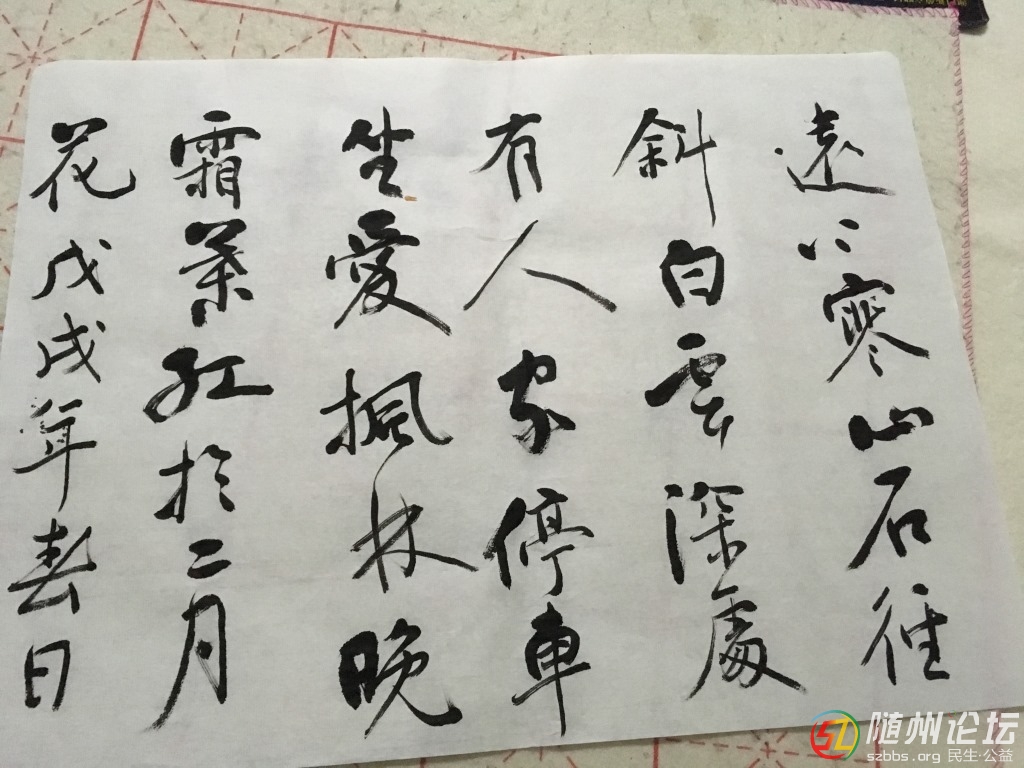 遠上寒山石径
斜白雲深處
有人家停車
坐愛楓林晚
霜葉紅於二月
花戊戌年春日
随州论坛
szbbs.org 民生·公益